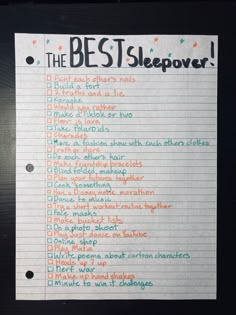 THE BEST Sleepover!
Paint each other's nails
Build a fort
2 truths and a lie
Karaoke
Would you rather
Make a Tiktok or two
Floor is lava
Take Polaroids
Charades
Have a fashion show with each others clothes
Truth or dare
Do each others hair
Make friendship bracelets
Blind folded makeup
Plan your futures together
Cook something
Have a Disney movie marathon
Dance to music
Try a short workout routine together
Face masks
Make bucket lists
Do a photo shoot
Play Just dance on Youtube
Online shop
Play Mafia
Write poems about cartoon characters
Heads up 7 up
Nerf war
Make up hand shakes
Minute to win it challenges